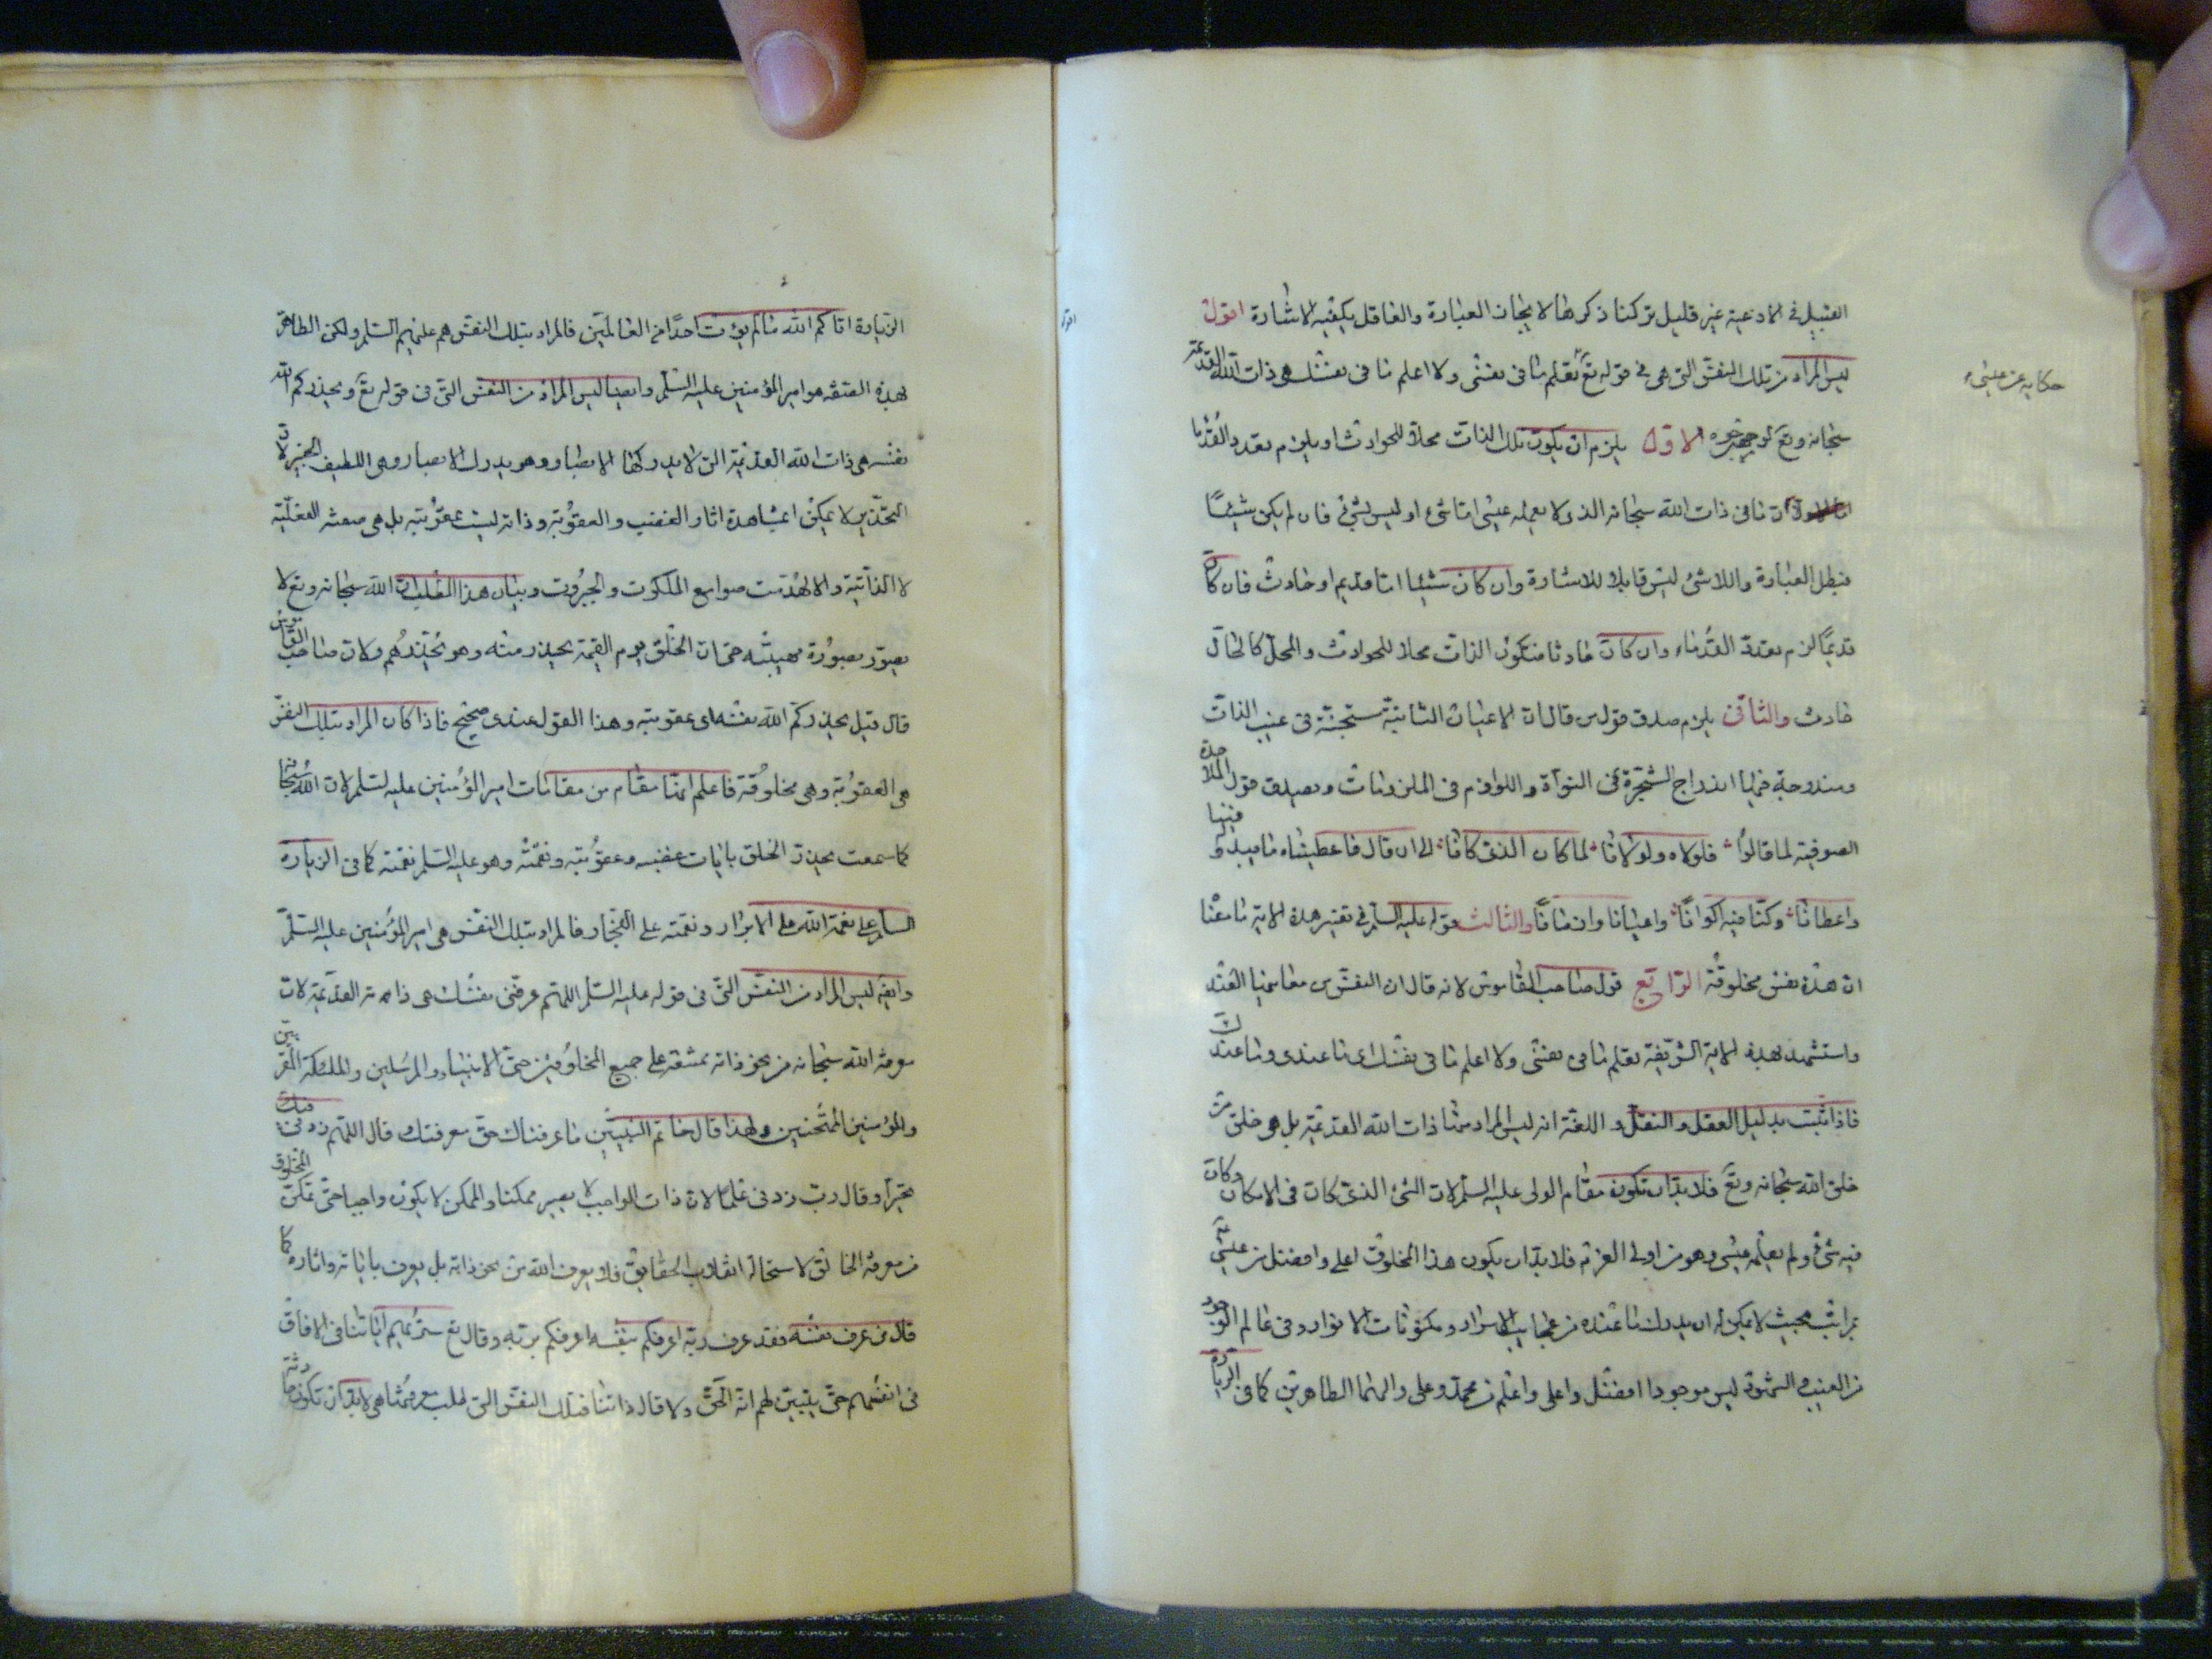 القبيل فى الادعية غير قليل تركنا ذكرها لايجاز العبارة والعاقل يكفيه الاشارة اقول
ليس المراد من تلك النفس التى هى فى قوله تع تعلم ما فى نفسى ولا اعلم ما فى نفسك هى ذات الله القديمة
حكاية عن عيسى ع
سبحانه وتع لوجوه الاول يلزم ان يكون تلك الذات محلا للحوادث او يلزم تعدد القدما
ان ما فى ذات الله سبحانه الذى لا يعلمه عيسى اما شئ او ليس بشئ فان لم يكن شيئا
فبطل العبارة واللاشئ ليس قابلا للاشارة وان كان شيئا اما قديم او حادث فان كان
قديما لزم تعدد القدماء وان كان حادثا فتكون الذات محلا للحوادث والمحل كالحال
حادث والثانى يلزم صدق قول من قال ان الاعيان الثابتة مستجنة فى غيب الذات
ومندرجة فيها اندراج الشجرة فى النواة واللوازم فى الملزومات وتصدق قول الملاحدة
الصوفية لما قالوا فلولاه ولولانا لما كان الذى كانا الى ان قال فاعطيناه ما يبدو فينا
واعطانا وكنا فيه اكوانا واعيانا وازمانا والثالث قوله عليه السلم فى تفسير هذه الاية ما معنا
ان هذه نفس مخلوقة الرابع قول صاحب القاموس لانه قال ان النفس من معانيها العند
واستشهد بهذه الاية الشريفة تعلم ما فى نفسى ولا اعلم ما فى نفسك اى ما عندى وما عندك
فاذا ثبت بدليل العقل والنقل واللغة انه ليس المراد منها ذات الله القديمة بل هو خلق من
خلق الله سبحانه وتع فلابد ان تكون مقام الولى عليه السلم لان الشئ الذى كان فى الامكان وكان
فيه شئ ولم يعلمه عيسى وهو من اولى العزم فلابد ان يكون هذا المخلوق اعلى وافضل من عيسى ع
بمراتب بحيث لا يمكن له ان يدرك ما عنده من عجايب الاسرار ومكنونات الانوار وفى عالم الوجود
من الغيب والشهود ليس موجودا افضل واعلى واعلم من محمد وعلى والهما الطاهرين كما فى الزيارة
الزيارة اتاكم الله ما لم يؤت احدا من العالمين فالمراد بتلك النفس هم عليهم السلم ولكن الظاهر
بهذه الصفة هو امير المؤمنين عليه السلم وايضا ليس المراد من النفس التى فى قوله تع ويحذركم الله
نفسه هى ذات الله القديمة التى لا يدركها الابصار وهو يدرك الابصار وهو اللطيف الخبير لان
التحذير لا يمكن الا بمشاهدة اثار الغضب والعقوبة وذاته ليست عقوبته بل هى صفته الفعلية
لا الذاتية والا لهدمت صوامع الملكوت والجبروت وبيان هذا المطلب ان الله سبحانه وتع لا
يصور بصورة مهيبة حتى ان الخلق يوم القيمة يحذر منه وهو يحذرهم ولان صاحب القاموس
قال قيل يحذركم الله نفسه اى عقوبته وهذا القول عندى صحيح فاذا كان المراد بتلك النفس
هى العقوبة وهى مخلوقة فاعلم انها مقام من مقامات امير المؤمنين عليه السلم لان الله سبحانه
كما سمعت يحذر الخلق بايات غضبه وعقوبته ونقمته وهو عليه السلم نقمته كما فى الزيارة
السلم على نعمة الله على الابرار ونقمته على الفجار فالمراد بتلك النفس هى امير المؤمنين عليه السلم
وايضا ليس المراد من النفس التى فى قوله عليه السلم اللهم عرفنى نفسك هى ذاته القديمة لان
معرفة الله سبحانه من نحو ذاته ممتنعة على جميع المخلوقين حتى الانبياء والمرسلين والملئكة المقربين
والمؤمنين الممتحنين ولهذا قال خاتم النبيين ما عرفناك حق معرفتك قال اللهم زدنى فيك
تحيرا وقال رب زدنى علما لان ذات الواجب لا يصير ممكنا والممكن لا يكون واجبا حتى تمكن المخلوق
من معرفة الخالق لاستحالة انقلاب الحقايق فلا يعرف الله من نحو ذاته بل يعرف باياته واثاره كما
قال من عرف نفسه فقد عرف ربه اعرفكم بنفسه اعرفكم بربه وقال تع سنريهم اياتنا فى الافاق
فى انفسهم حتى يتبين لهم انه الحق ولا قال ذاتنا فتلك النفس التى طلب معرفتها هى لابد ان تكون حادثة